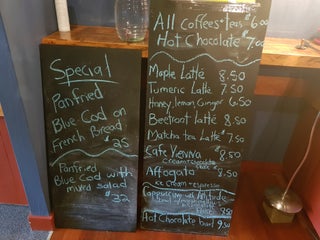 Special
Panfried
Blue Cod on
French Bread
25
Panfried
Blue Cod with
mixed salad
$32
All Coffees + teas $6.00
Hot Chocolate $7.00
Maple Latté 8.50
Tumeric Latté 7.50
Honey, lemon, Ginger 6.50
Beetroot latté 8.50
Matcha tea Latté 7.50
Cafe Vienna $8.50
Affogato 8.50
ice cream + espresso
Cappuccino with Attitude
Hot Chocolate bowl 9.50